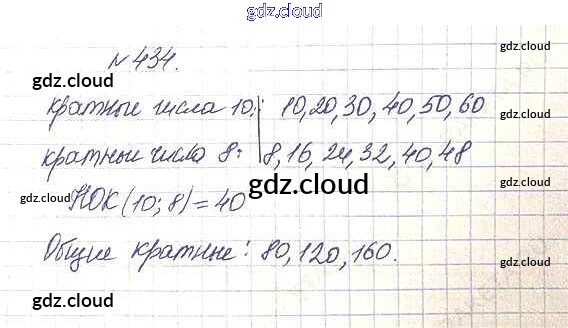 gdz.cloud
gdz.cloud
gdz.cloud
№434.
gdz.cloud
gdz.cloud
кратные числа 10: 10, 20, 30, 40, 50, 60
gdz.cloud
кратные числа 8: 8, 16, 24, 32, 40, 48
gdz.cloud
gdz.cloud
gdz.cloud
НОК(10; 8) = 40
gdz.cloud
Общие кратные: 80, 120, 160.
gdz.cloud
gdz.cloud